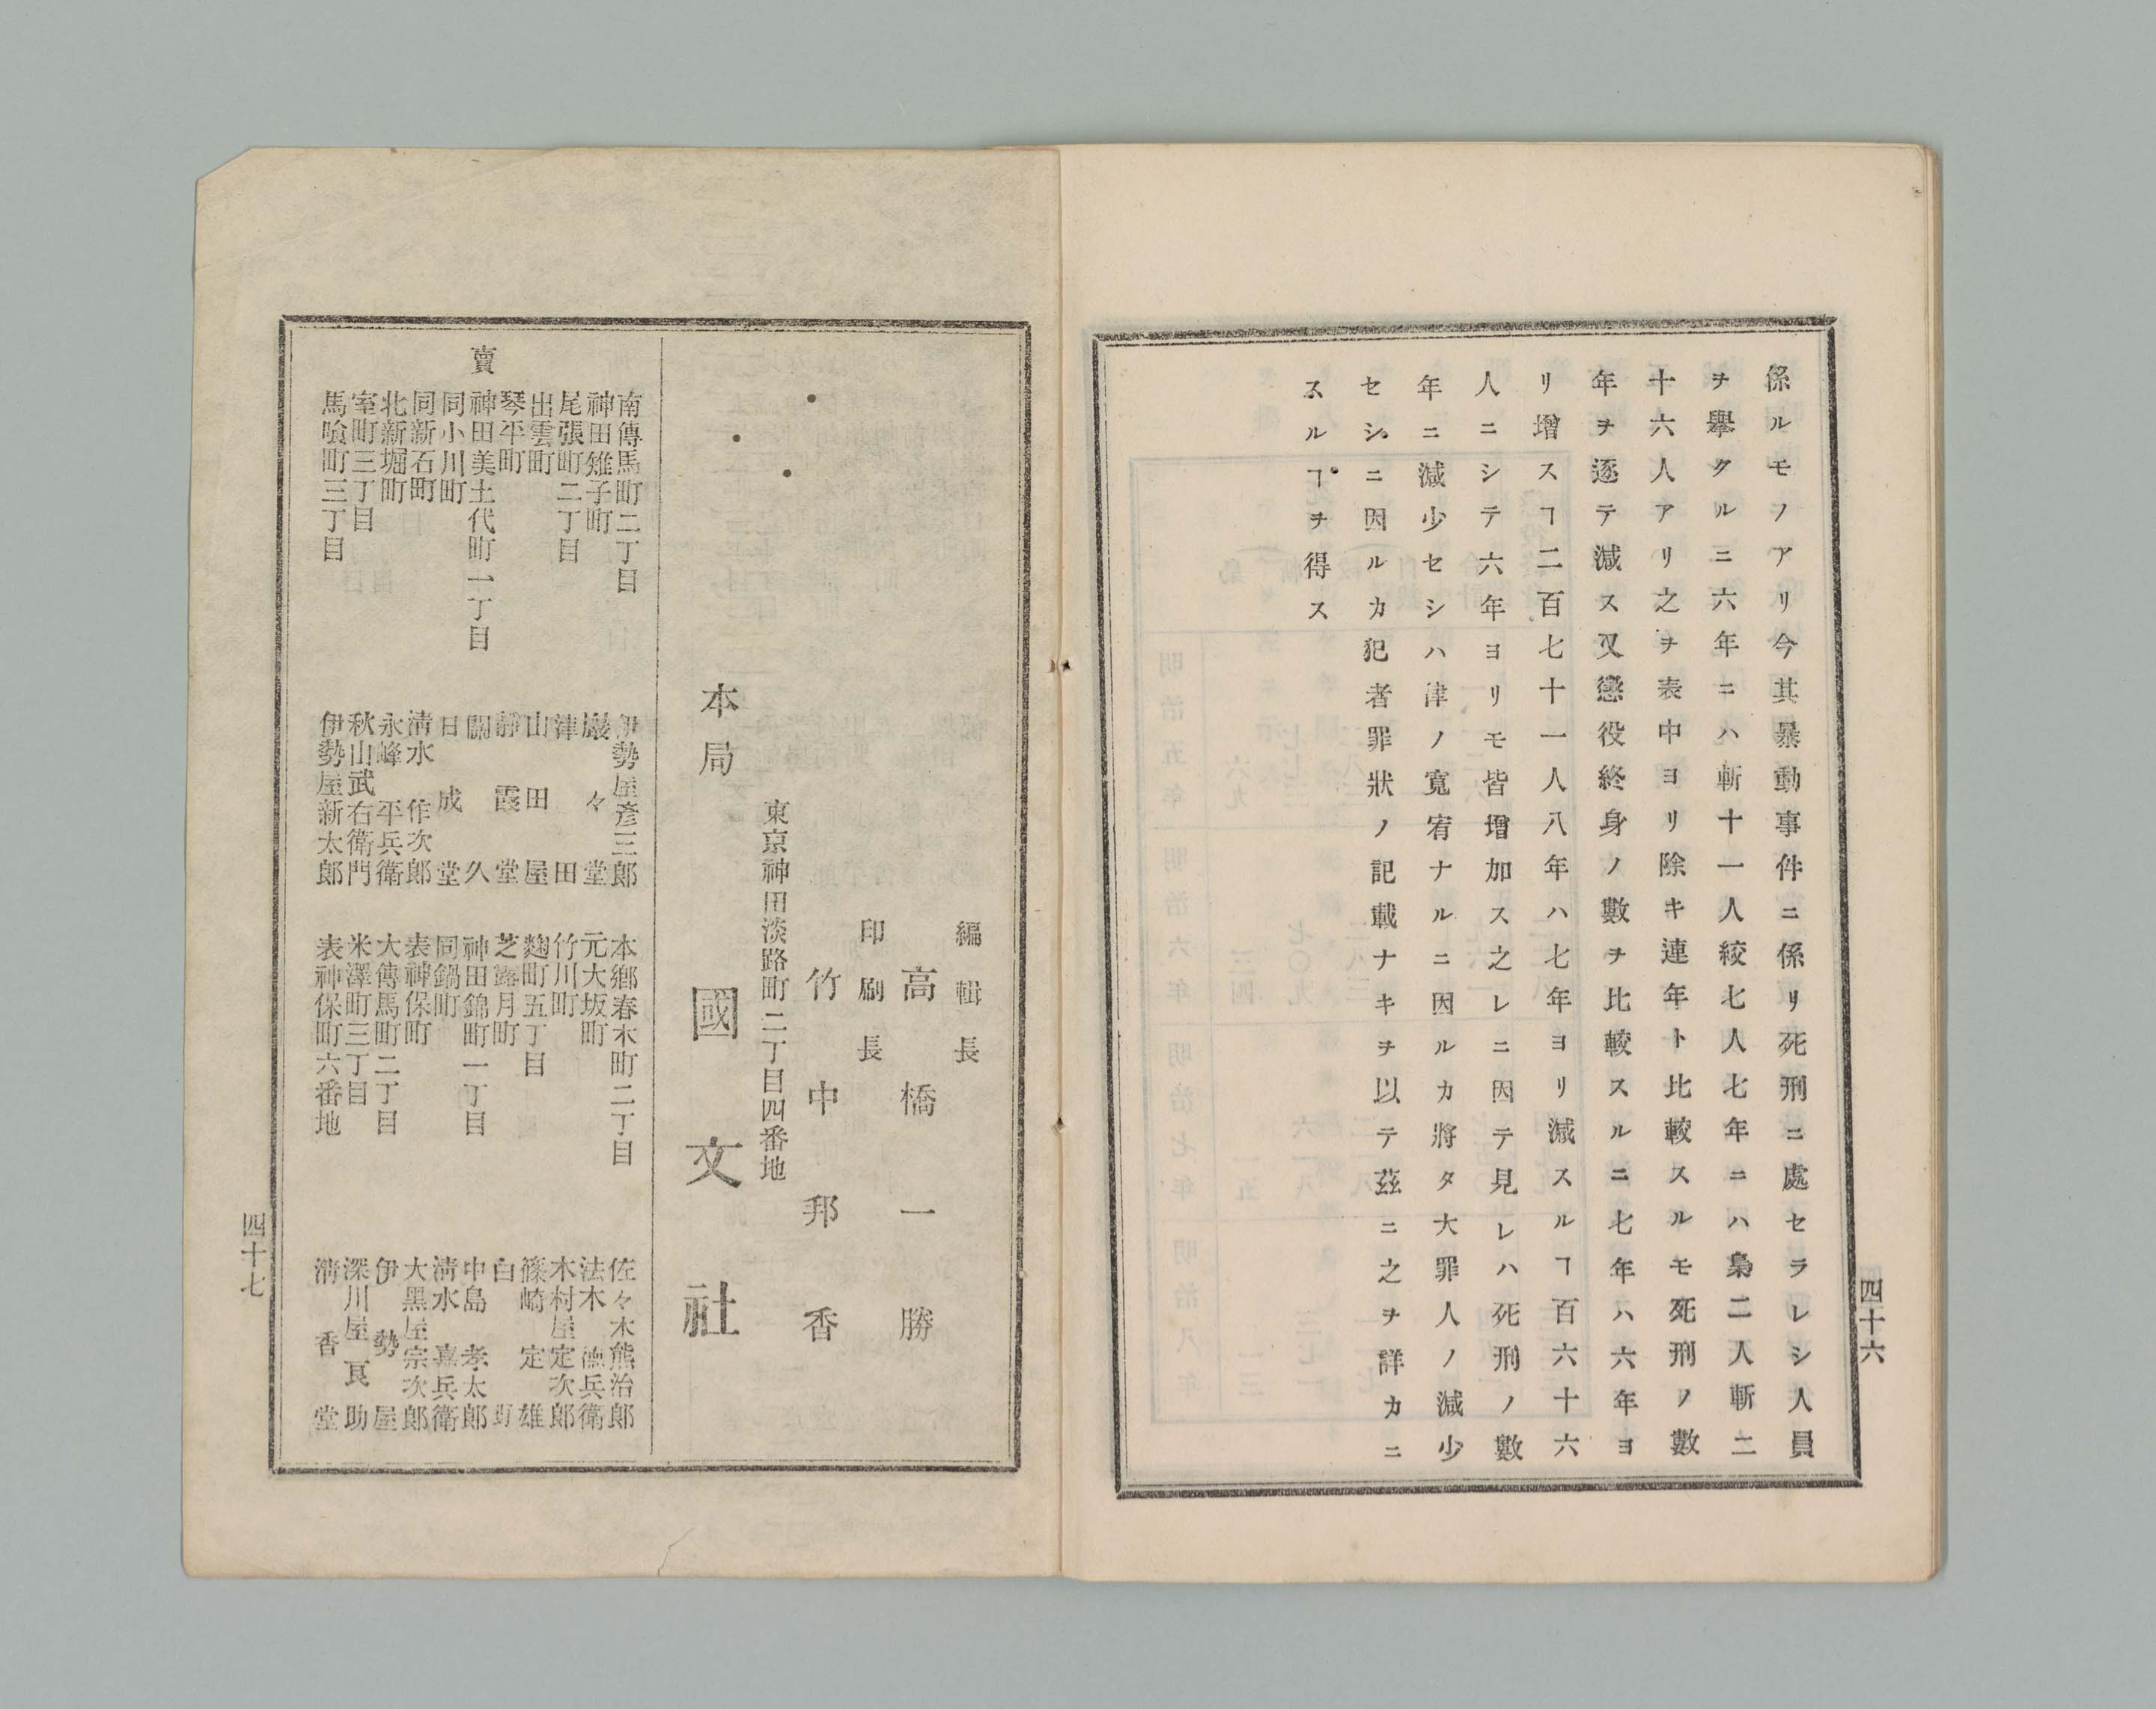 係ルモノアリ今其暴動事件ニ係リ死刑ニ處セラレシ人員
ヲ擧クルニ六年ニハ斬十一人絞七人七年ニハ梟二人斬二
十六人アリ之ヲ表中ヨリ除キ連年ト比較スルモ死刑ノ數
年ヲ逐テ減ス又懲役終身ノ數ヲ比較スルニ七年ハ六年ヨ
リ增スヿ二百七十一人八年ハ七年ヨリ減スルヿ百六十六
人ニシテ六年ヨリモ皆增加ス之レニ因テ見レハ死刑ノ數
年ニ減少セシハ律ノ寬宥ナルニ因ルカ將タ大罪人ノ減少
セシニ因ルカ犯者罪狀ノ記載ナキヲ以テ茲ニ之ヲ詳カニ
スルヿヲ得ス
四十六
編輯長
高橋一勝
印刷長
竹中邦香
東京神田淡路町二丁目四番地
本局 國文社
賣
南傳馬町二丁目 伊勢屋彥三郎 本鄕春木町二丁目 佐々木熊治郎
神田雉子町 巖々堂 元大坂町 法木德兵衛
尾張町二丁目 津田 竹川町 木村屋定次郎
出雲町 山田屋 麴町五丁目 篠崎定雄
琴平町 靜霞堂 芝露月町 白
神田美土代町一丁目 久 神田錦町一丁目 中島孝太郎
同小川町 日成堂 同鍋町 淸水嘉兵衛
同新石町 淸水作次郎 表神保町 大黑屋宗次郎
北新堀町 永峰平兵衛 大傳馬町二丁目 伊勢屋
室町三丁目 秋山武右衛門 米澤町三丁目 深川屋良助
馬喰町三丁目 伊勢屋新太郎 表神保町六番地 淸香堂
四十七